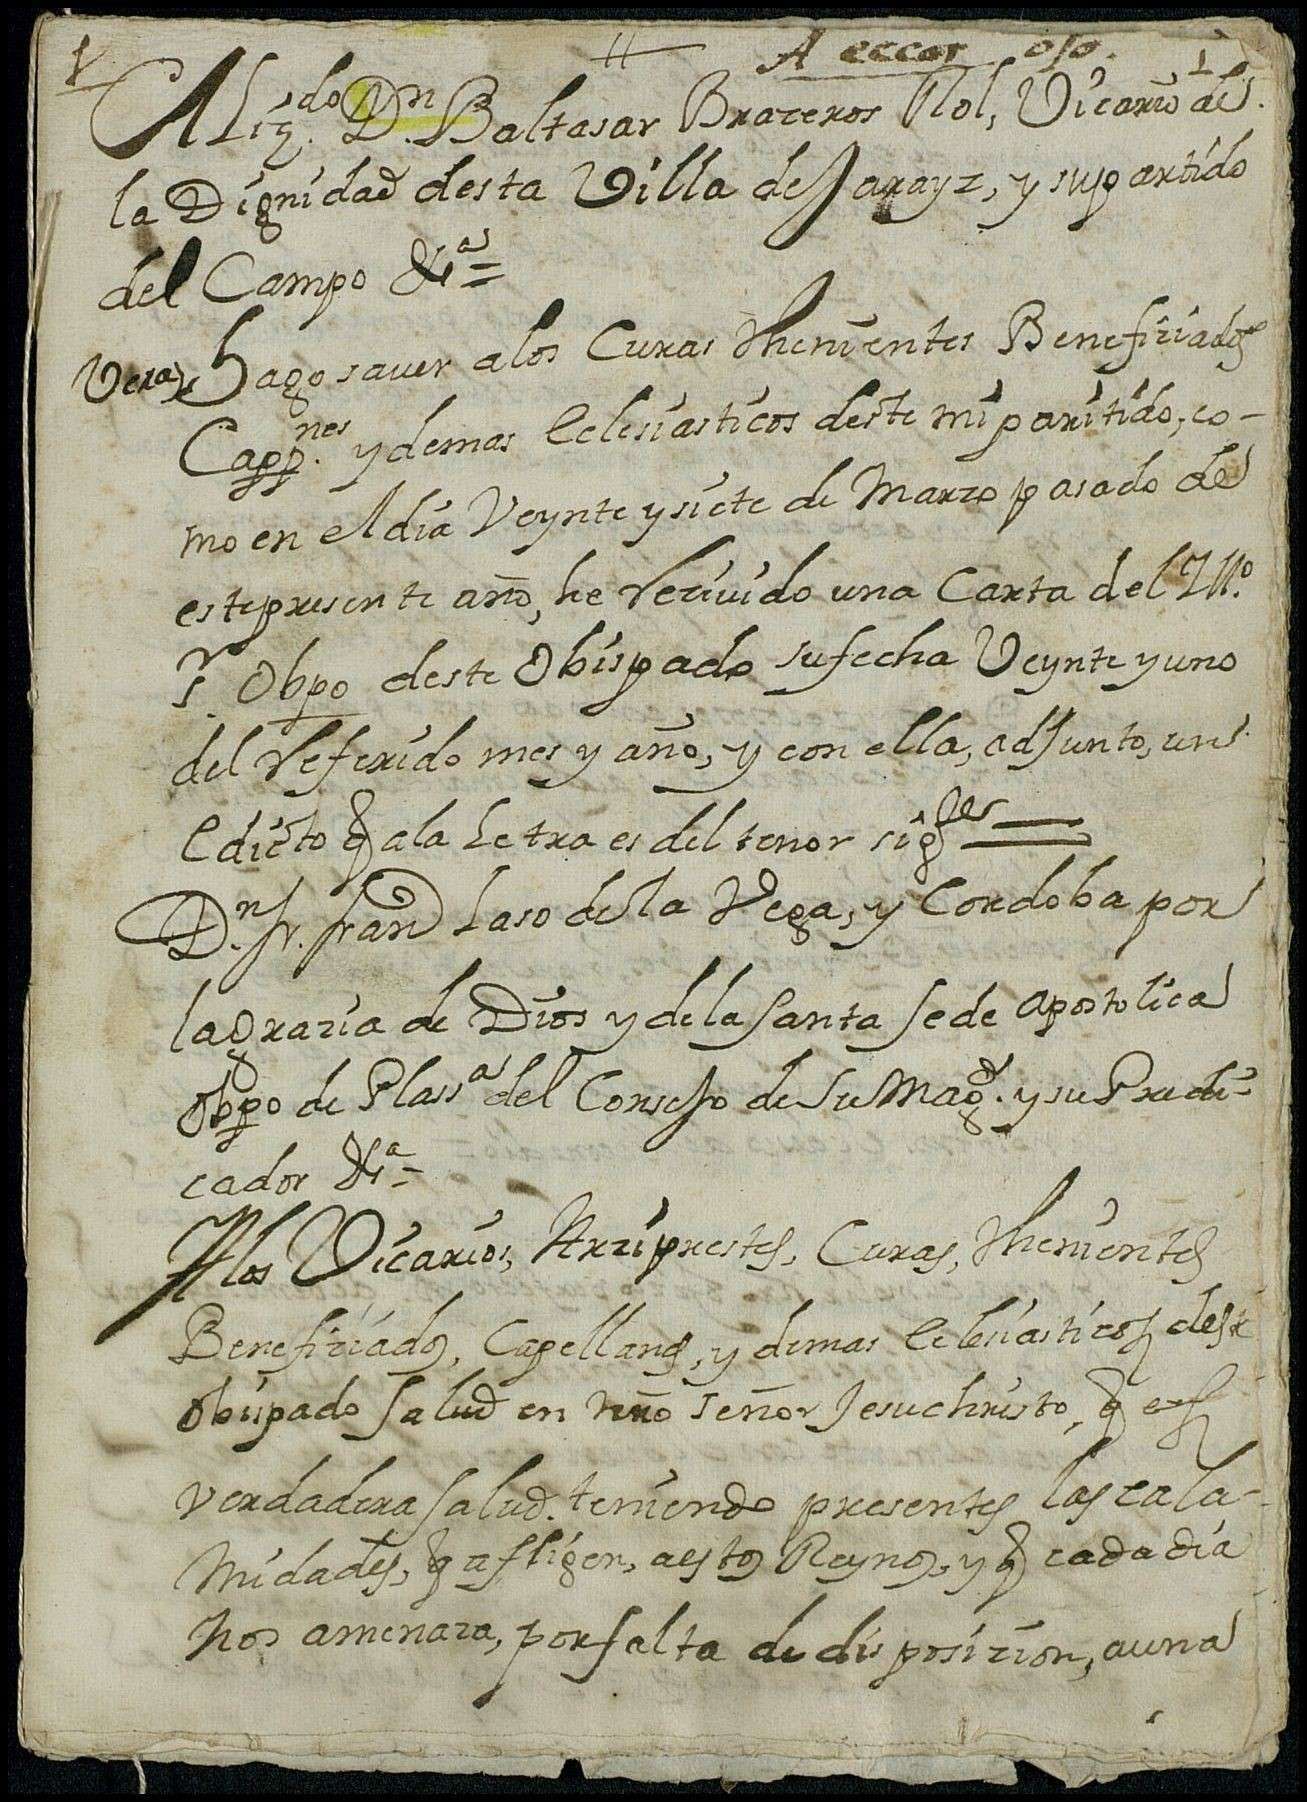 A eccar oso.
1
Liz.do D.n Baltasar Brazeros Rol, Vicario de
la Dignidad desta Villa de Jarayz, y su partido
del Campo &.a =
Vera
hago saver a los Curas Thenientes Benefiziados
Capp.nes y demas Eclesiasticos deste mi partido, co-
mo en el dia Veynte y siete de Marzo pasado de
este presente año, he rezivido una Carta del Ill.o
S.r Obpo deste Obispado su fecha Veynte y uno
del referido mes y año, y con ella, adjunto, un
Edicto q ala Letra es del tenor sig.te =
D.n fr. fran.co Laso de la Vega, y Cordoba por
la grazia de Dios y de la Santa Sede Apostolica
Obpo de Plass.a del Consejo de Su Mag.d y su Predi-
cador &.a -
A los Vicarios, Arziprestes, Curas, Thenientes
Benefiziados, Capellanes, y demas Eclesiasticos deste
Obispado Salud en nro Señor Jesuchristo, q es
verdadera Salud. teniendo presentes las cala-
midades, q afligen, a estos Reynos, y q cada dia
nos amenaza, por falta de disposizion, a una